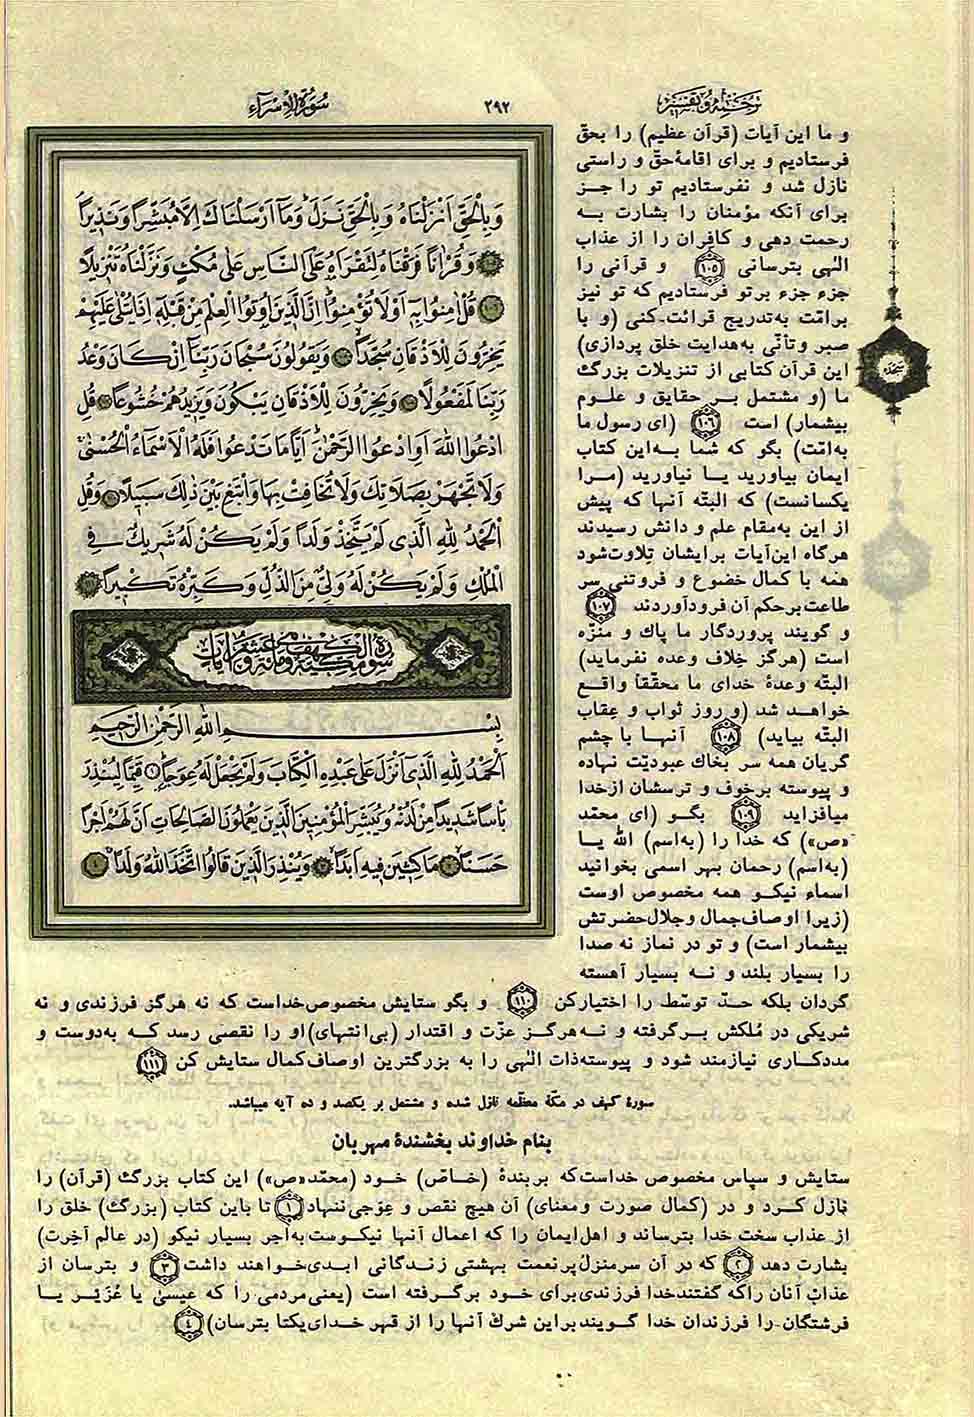 ترجمه و تفسیر
۲۹۲
سورة الإسراء
و ما این آیات (قرآن عظیم) را بحقّ
فرستادیم و برای اقامهٔ حقّ و راستی
نازل شد و نفرستادیم تو را جز
برای آنکه مؤمنان را بشارت به
رحمت دهی و کافران را از عذاب
الٰهی بترسانی ۱۰۵ و قرآنی را
جزء جزء برتو فرستادیم که تو نیز
برامّت به‌تدریج قرائت‌کنی (و با
صبر وتأنّی به‌هدایت خلق پردازی)
این قرآن کتابی از تنزیلات بزرگ
ما (و مشتمل بر حقایق و علوم
بیشمار) است ۱۰۶ (ای رسول ما
به‌امّت) بگو که شما به‌این کتاب
ایمان بیاورید یا نیاورید (مرا
یکسانست) که البتّه آنها که پیش
از این به‌مقام علم و دانش رسیدند
هرگاه این‌آیات برایشان تِلاوت‌شود
همه با کمال خضوع و فروتنی سر
طاعت برحکم آن فرودآوردند ۱۰۷
و گویند پروردگار ما پاك و منزّه
است (هرگز خِلاف وعده نفرماید)
البتّه وعدهٔ خدای ما محقّقاً واقع
خواهد شد (و روز ثواب و عِقاب
البتّه بیاید) ۱۰۸ آنها با چشم
گریان همه سر بخاك عبودیّت نهاده
و پیوسته برخوف و ترسشان ازخدا
میافزاید ۱۰۹ بگو (ای محمّد
«ص») که خدا را (به‌اسم) اللّٰه یا
(به‌اسم) رحمان بهر اسمی بخوانید
اسماء نیکو همه مخصوص اوست
(زیرا اوصاف‌جمال وجلال‌حضرتش
بیشمار است) و تو در نماز نه صدا
را بسیار بلند و نه بسیار آهسته
گردان بلکه حدّ توسّط را اختیارکن ۱۱۰ و بگو ستایش مخصوص خداست که نه هرگز فرزندی و نه
شریکی در مُلکش برگرفته و نه هرگز عزّت و اقتدار (بی‌انتهای) او را نقصی رسد که به‌دوست و
مددکاری نیازمند شود و پیوسته ذات الٰهی را به بزرگترین اوصاف‌کمال ستایش کن ۱۱۱
سجده
وَبِالْحَقِّ اَنْزَلْنَاهُ وَبِالْحَقِّ نَزَلَ وَمَا اَرْسَلْنَاكَ اِلَّا مُبَشِّرًا وَنَذِيرًا
۱۰۵ وَقُرْاٰنًا فَرَقْنَاهُ لِتَقْرَاَهُ عَلَى النَّاسِ عَلٰى مُكْثٍ وَنَزَّلْنَاهُ تَنْزِيلًا
۱۰۶ قُلْ اٰمِنُوا بِهٖ اَوْ لَا تُؤْمِنُوا اِنَّ الَّذِينَ اُوتُوا الْعِلْمَ مِنْ قَبْلِهٖ اِذَا يُتْلٰى عَلَيْهِمْ
يَخِرُّونَ لِلْاَذْقَانِ سُجَّدًا ۱۰۷ وَيَقُولُونَ سُبْحَانَ رَبِّنَا اِنْ كَانَ وَعْدُ
رَبِّنَا لَمَفْعُولًا ۱۰۸ وَيَخِرُّونَ لِلْاَذْقَانِ يَبْكُونَ وَيَزِيدُهُمْ خُشُوعًا ۱۰۹ قُلِ
ادْعُوا اللّٰهَ اَوِ ادْعُوا الرَّحْمٰنَ اَيًّا مَا تَدْعُوا فَلَهُ الْاَسْمَاءُ الْحُسْنٰى
وَلَا تَجْهَرْ بِصَلَاتِكَ وَلَا تُخَافِتْ بِهَا وَابْتَغِ بَيْنَ ذٰلِكَ سَبِيلًا ۱۱۰ وَقُلِ
الْحَمْدُ لِلّٰهِ الَّذِي لَمْ يَتَّخِذْ وَلَدًا وَلَمْ يَكُنْ لَهُ شَرِيكٌ فِي
الْمُلْكِ وَلَمْ يَكُنْ لَهُ وَلِيٌّ مِنَ الذُّلِّ وَكَبِّرْهُ تَكْبِيرًا ۱۱۱
سورة الكهف مكية وهي مائة وعشر آيات
بِسْمِ اللّٰهِ الرَّحْمٰنِ الرَّحِيمِ
اَلْحَمْدُ لِلّٰهِ الَّذِي اَنْزَلَ عَلٰى عَبْدِهِ الْكِتَابَ وَلَمْ يَجْعَلْ لَهُ عِوَجًا ۱ قَيِّمًا لِيُنْذِرَ
بَاْسًا شَدِيدًا مِنْ لَدُنْهُ وَيُبَشِّرَ الْمُؤْمِنِينَ الَّذِينَ يَعْمَلُونَ الصَّالِحَاتِ اَنَّ لَهُمْ اَجْرًا
حَسَنًا ۲ مَاكِثِينَ فِيهِ اَبَدًا ۳ وَيُنْذِرَ الَّذِينَ قَالُوا اتَّخَذَ اللّٰهُ وَلَدًا ۴
سورهٔ کهف در مکّهٔ معظّمه نازل شده و مشتمل بر یکصد و ده آیه میباشد.
بنام خداوند بخشندهٔ مهربان
ستایش و سپاس مخصوص خداست‌که بربندهٔ (خاصّ) خود (محمّد «ص») این کتاب بزرگ (قرآن) را
نازل کرد و در (کمال صورت ومعنای) آن هیچ نقص و عِوَجی ننهاد ۱ تا باین کتاب (بزرگ) خلق را
از عذاب سخت خدا بترساند و اهل‌ایمان را که اعمال آنها نیکوست به‌اجر بسیار نیکو (در عالم آخرت)
بشارت دهد ۲ که در آن سرمنزل پرنعمت بهشتی زندگانی ابدی خواهند داشت ۳ و بترسان از
عذابِ آنان راکه گفتندخدا فرزندی برای خود برگرفته است (یعنی مردمی را که عیسیٰ یا عُزَیر یا
فرشتگان را فرزندان خدا گویند براین شرك آنها را از قهر خدای‌یکتا بترسان) ۴